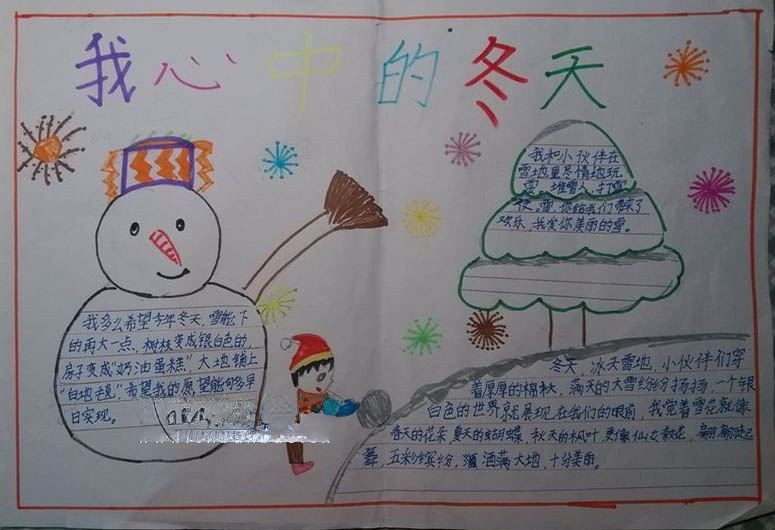 我心中的冬天
我和小伙伴在
雪地里尽情地玩
堆雪人,打雪
仗。雪,你给我们带来了
欢乐,我爱你美丽的雪。
我多么希望今年冬天,雪能下
的再大一点,树林变成银白色的,
房子变成"奶油蛋糕",大地铺上
"白地毯",希望我的愿望能够早
日实现。
冬天,冰天雪地,小伙伴们穿
着厚厚的棉袄,满天的大雪纷纷扬扬,一个银
白色的世界就展现在我们的眼前,我觉着雪花就像
春天的花朵,夏天的蝴蝶,秋天的枫叶,更像仙女散花,翩翩起
舞,五彩缤纷,洒满大地,十分美丽。